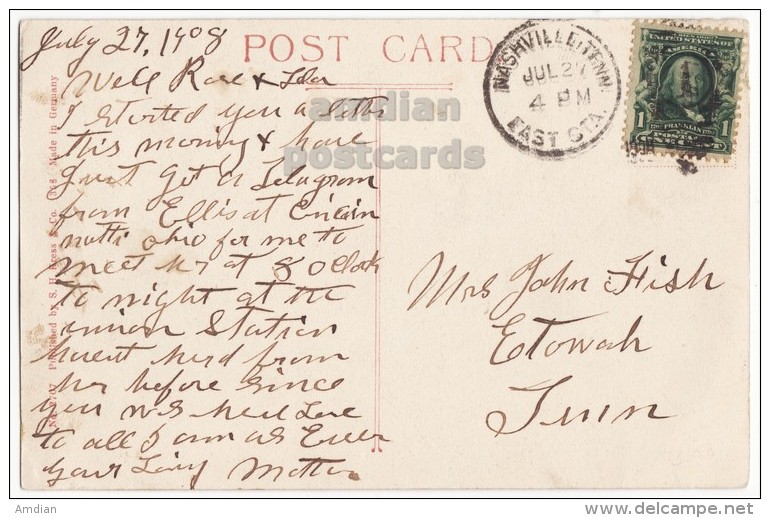 July 27, 1908
POST CARD
NASHVILLE, TENN.
JUL 27
4 PM
EAST STA.
UNITED STATES OF
AMERICA
1 FRANKLIN 1
Well & Ida
I started you a letter
this morning & have
Just got a Telagram
from Ellis at Cincin
natti Ohio for me to
meet her at 8 o Clock
to night at the
union Station
havent herd from
her before since
you was here Love
to all I am as Ever
your Loving Mother
Mrs John Fish
Etowah
Tenn
amdian
postcards
Published by S. H. Kress & Co. Made in Germany
delcampe.net
Amdian